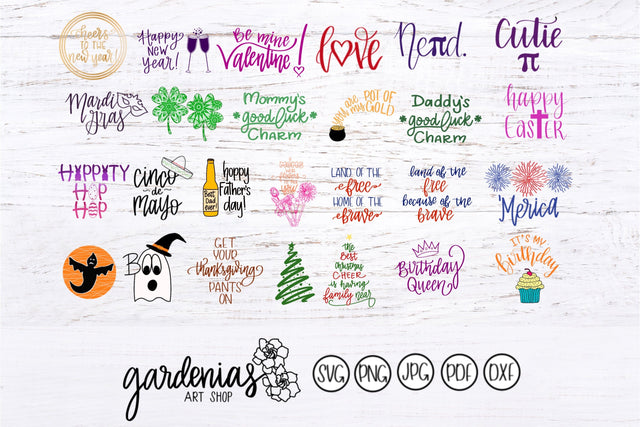 cheers
to the
new year!
Happy
New
year!
Be mine
Valentine!
love
Neπd.
Cutie
π
Mardi
Gras
Mommy's
good luck
Charm
you are my
POT OF
GOLD
Daddy's
good luck
Charm
happy
EasTER
HIPPITY
HOP
HOP
cinco
de
Mayo
Best
Dad
ever!
happy
Father's
day!
LAND OF THE
free
HOME OF THE
brave
land of the
free
because of the
brave
'Merica
BOO
GET
YOUR
thanksgiving
PANTS
ON
the
Best
Christmas
CHEER
is having
family near
Birthday
Queen
IT'S MY
birthday
gardenias
ART SHOP
SVG
PNG
JPG
PDF
DXF